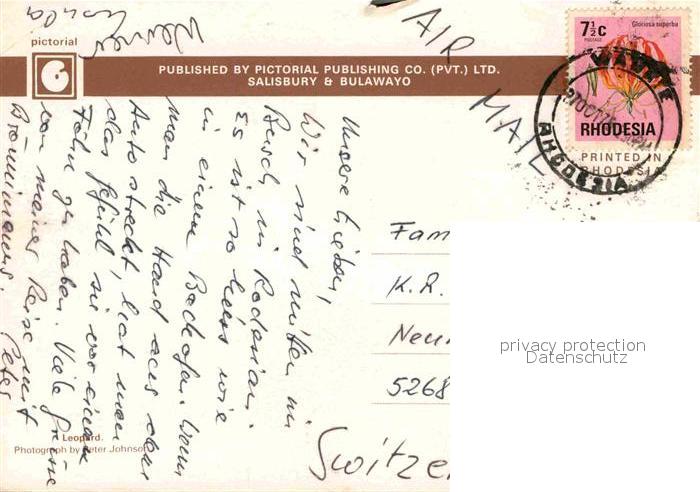 pictorial
PUBLISHED BY PICTORIAL PUBLISHING CO. (PVT.) LTD.
SALISBURY & BULAWAYO
AIR
MAIL
Gloriosa superba
7½c
POSTAGE
RHODESIA
WANKIE
RHODESIA
PRINTED IN
RHODESIA
Unsere Lieben,
Wir sind mitten im
Busch in Rodesien.
Es ist so heiss wie
in einem Backofen. Wenn
man die Hand aus dem
Auto streckt, hat man
das Gefühl, sie vor einem
Föhn zu haben. Viele Grüsse
von meiner Reise mit
Brönnimanns. Peter
Werner
Fam
K.R.
Neu
5268
Switze
privacy protection
Datenschutz
Leopard.
Photograph by Peter Johnson